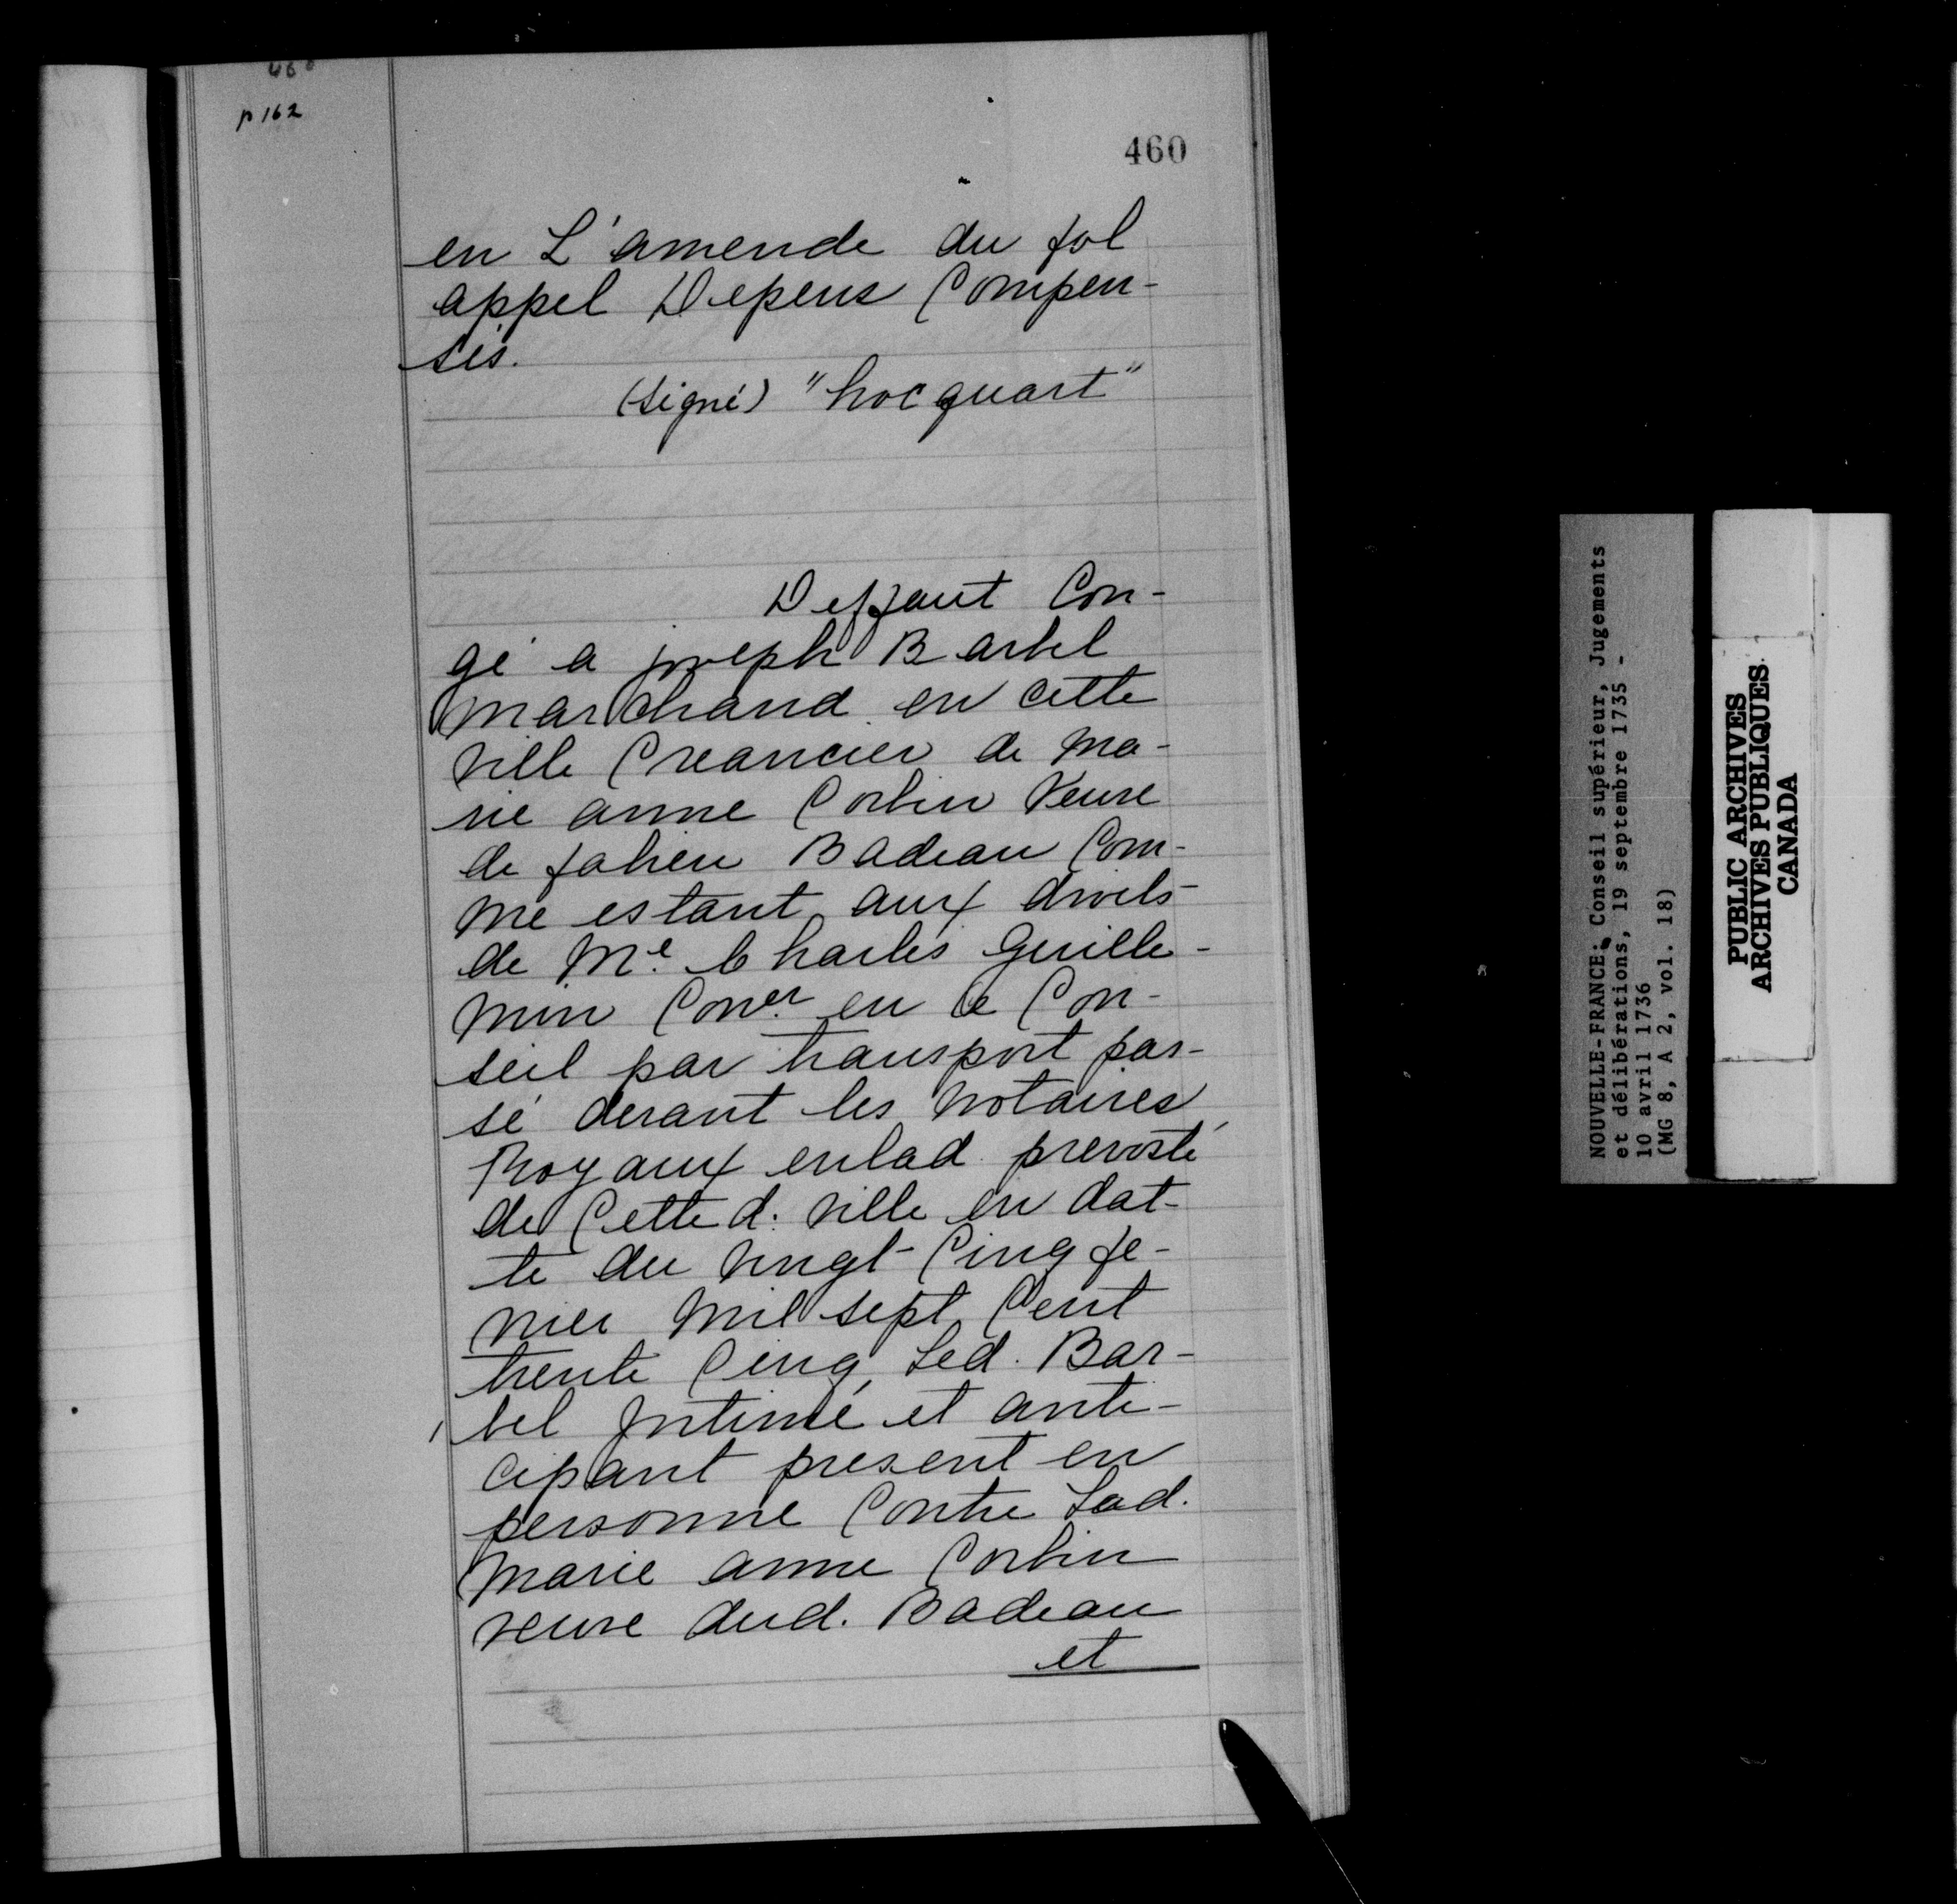 460
p 162
460
en L'amende du fol
appel Depens Compen-
sés.
(signé) "hocquart"
Deffaut Con-
gé a joseph Barbel
marchand en cette
ville Creancier de ma-
rie anne Corbin Veuve
de fabien Badeau Com-
me estant aux droits
de Me. Charles Guille-
min Coner. en Ce Con-
seil par transport pas-
sé devant les notaires
Royaux enlad. prevosté
de Cette d. ville en dat-
te du vingt-Cinq fe-
vrier mil sept Cent
trente Cinq, Led. Bar-
bel Intimé et anti-
cipant present en
personne Contre Lad.
marie anne Corbin
veuve dud. Badeau
et
NOUVELLE-FRANCE: Conseil supérieur, Jugements
et délibérations, 19 septembre 1735 -
10 avril 1736
(MG 8, A 2, vol. 18)
PUBLIC ARCHIVES
ARCHIVES PUBLIQUES
CANADA